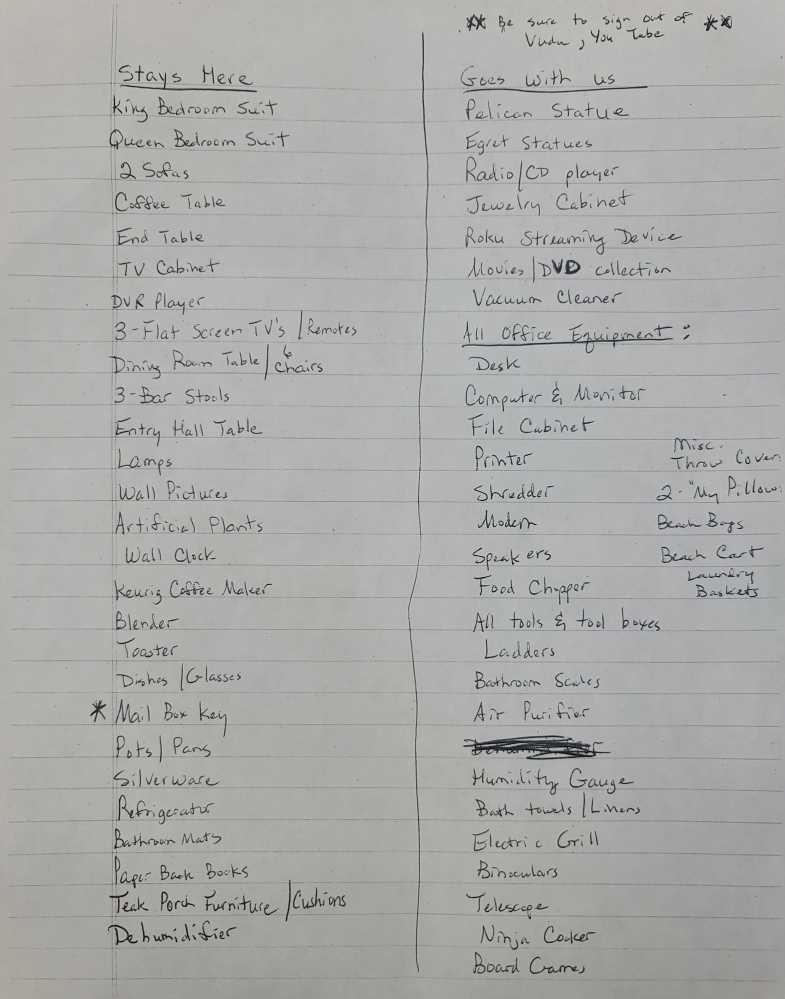 ** Be sure to sign out of **
Vudu, You Tube
Stays Here
King Bedroom Suit
Queen Bedroom Suit
2 Sofas
Coffee Table
End Table
TV Cabinet
DVR Player
3-Flat Screen TV's / Remotes
Dining Room Table / 6 Chairs
3-Bar Stools
Entry Hall Table
Lamps
Wall Pictures
Artificial Plants
Wall Clock
Keurig Coffee Maker
Blender
Toaster
Dishes / Glasses
* Mail Box Key
Pots / Pans
Silverware
Refrigerator
Bathroom Mats
Paper Back Books
Teak Porch Furniture / Cushions
Dehumidifier
Goes With us
Pelican Statue
Egret Statues
Radio/CD player
Jewelry Cabinet
Roku Streaming Device
Movies / DVD collection
Vacuum Cleaner
All Office Equipment:
Desk
Computer & Monitor
File Cabinet
Printer
Shredder
Modem
Speakers
Food Chopper
All tools & tool boxes
Ladders
Bathroom Scales
Air Purifier
Humidity Gauge
Bath towels / Linens
Electric Grill
Binoculars
Telescope
Ninja Cooker
Board Games
Misc.
Throw Cover
2-"My Pillow
Beach Bags
Beach Cart
Laundry
Baskets